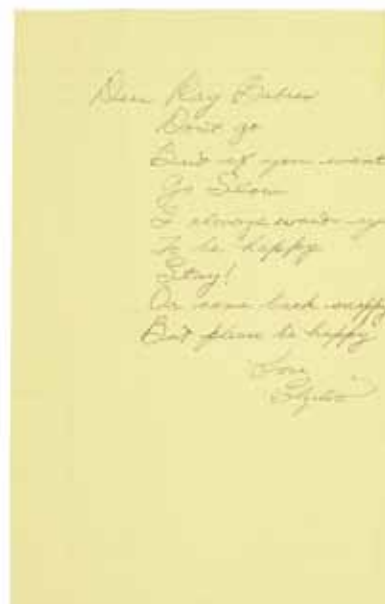 Dear Ray Babies
Don't go
But if you want
Go Slow
I always wants
To be happy
Stay!
Or come back snappy
But please be happy
Love